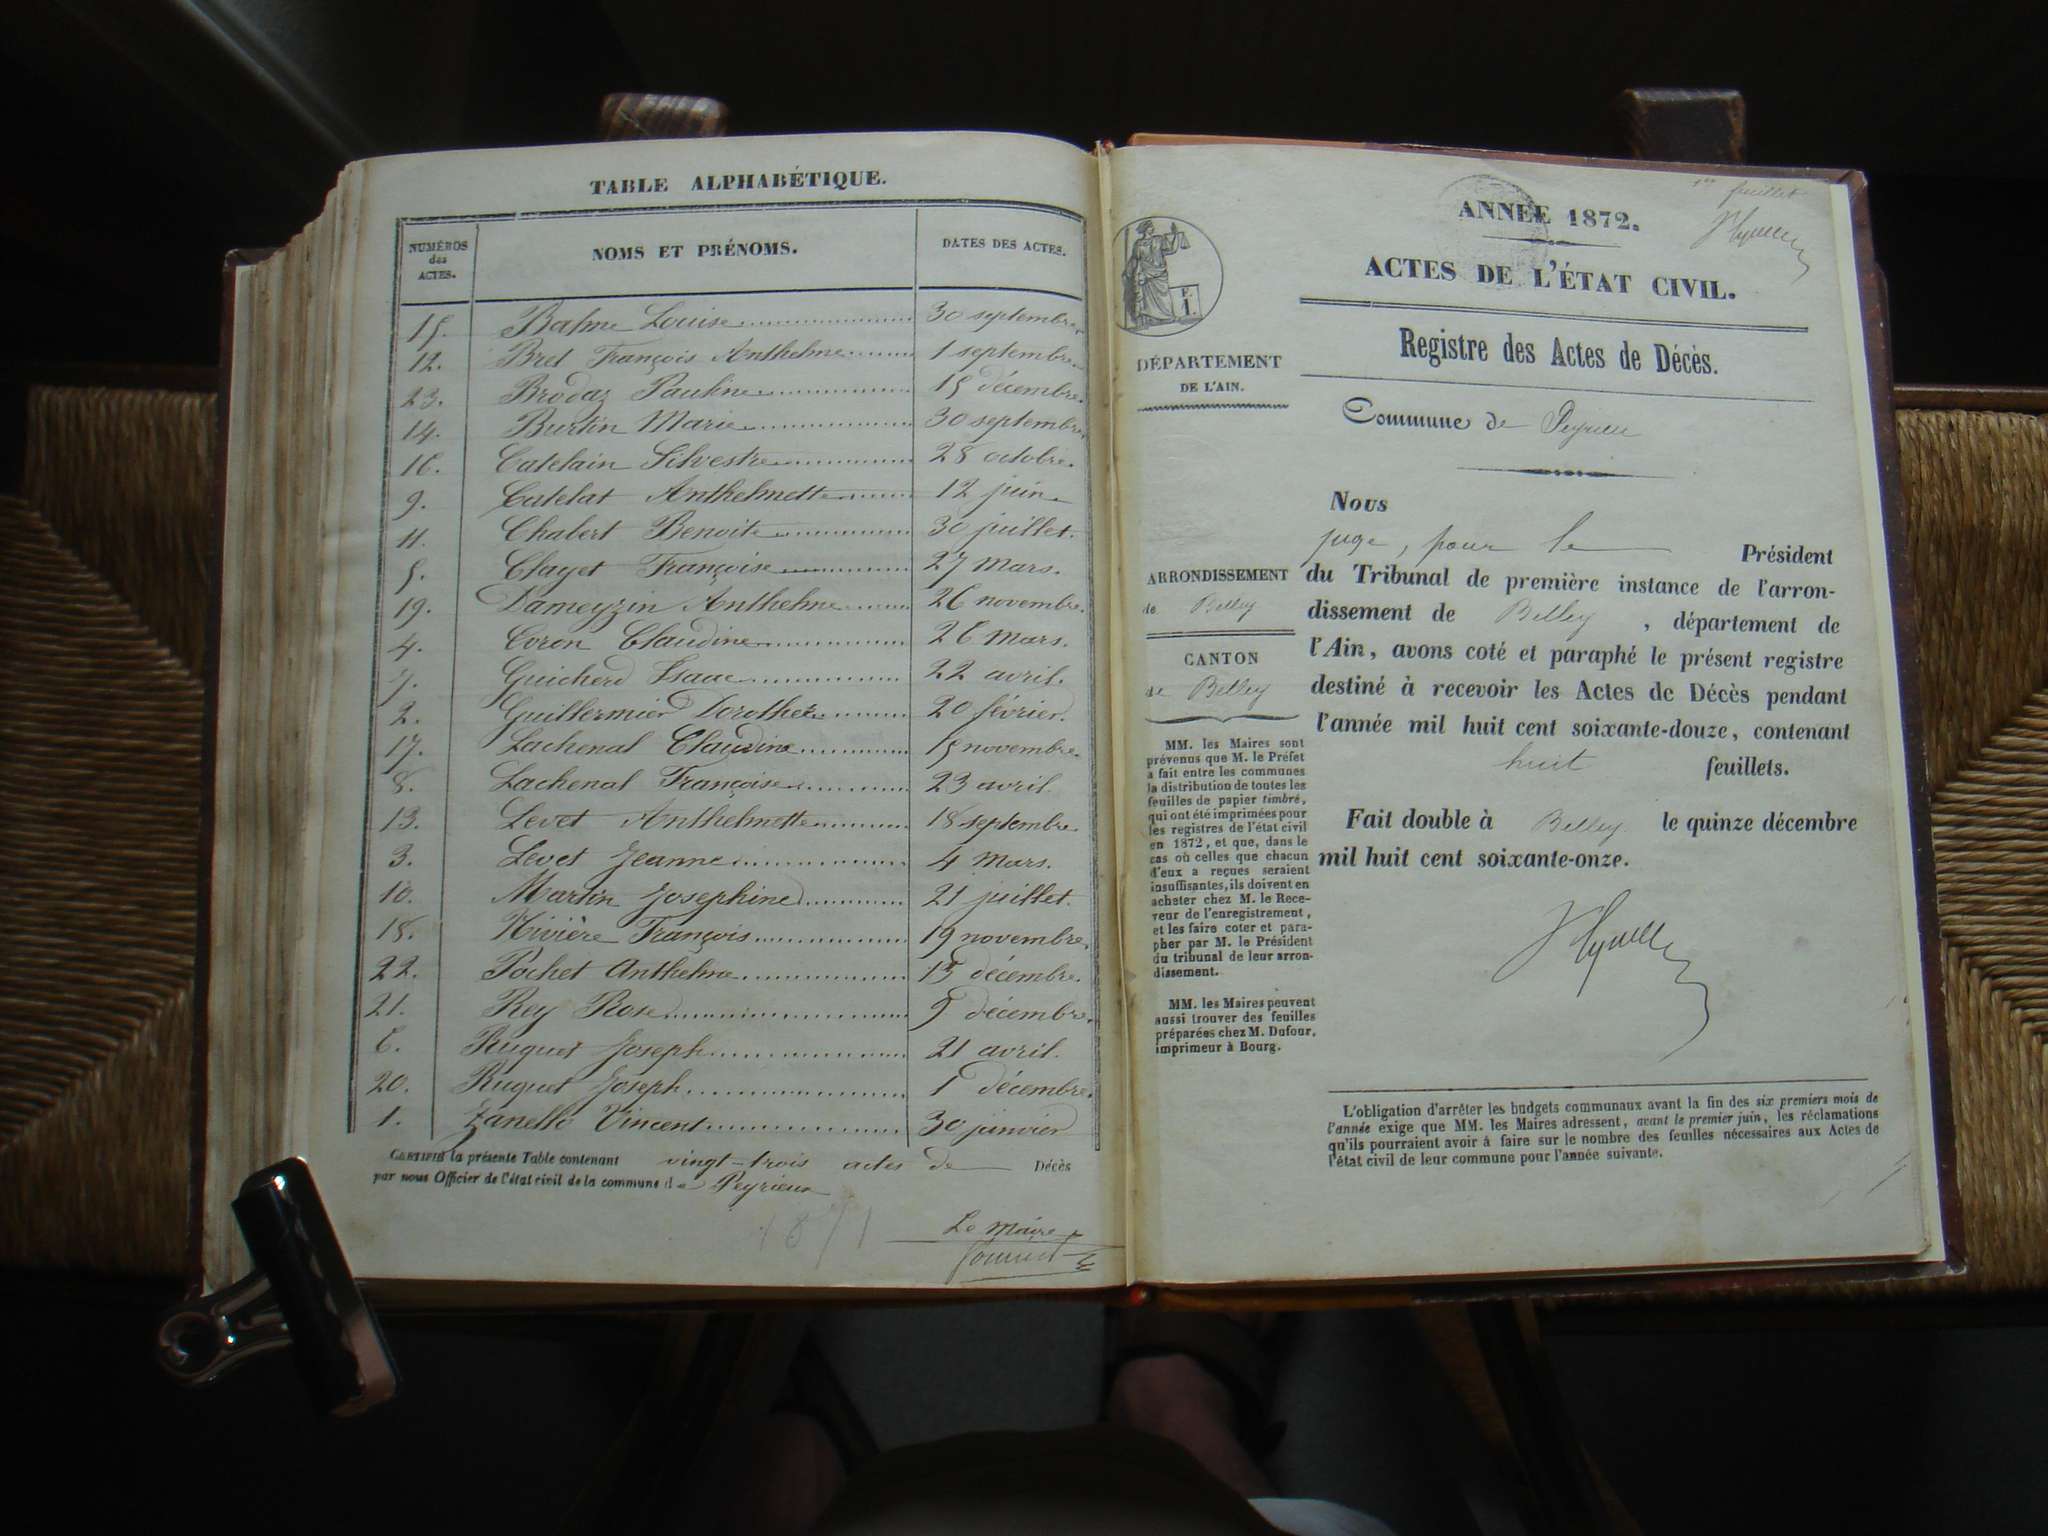 TABLE ALPHABÉTIQUE.
NUMÉROS des ACTES. NOMS ET PRÉNOMS. DATES DES ACTES.
15. Balme Louise 30 septembre.
12. Bret François Anthelme 1 septembre.
23. Brodaz Pauline 15 décembre.
14. Burtin Marie 30 septembre.
16. Catelain Silvestre 28 octobre.
9. Catelat Anthelmette 12 juin.
11. Chabert Benoite 30 juillet.
5. Clayet Françoise 27 mars.
19. Dameyzin Anthelme 26 novembre.
4. Coron Claudine 26 mars.
7. Guicherd Isaac 22 avril.
2. Guillermier Dorothée 20 février.
17. Lachenal Claudine 15 novembre.
8. Lachenal Françoise 23 avril.
13. Levet Anthelmette 18 septembre.
3. Levet Jeanne 4 mars.
10. Martin Josephine 21 juillet.
18. Rivière François 19 novembre.
22. Pochet Anthelme 15 décembre.
21. Rey Rose 9 décembre.
6. Ruquet Joseph 21 avril.
20. Ruquet Joseph 1 décembre.
1. Zanello Vincent 30 janvier
CERTIFIÉ la présente Table contenant vingt-trois actes de Décès
par nous Officier de l'état civil de la commune de Peyrieux
1871
Le Maire
1er feuillet
ANNÉE 1872.
ACTES DE L'ÉTAT CIVIL.
Registre des Actes de Décès.
Commune de Peyrieu
F. 1.
DÉPARTEMENT
DE L'AIN.
ARRONDISSEMENT
de Belley
CANTON
de Belley
MM. les Maires sont
prévenus que M. le Préfet
a fait entre les communes
la distribution de toutes les
feuilles de papier timbré,
qui ont été imprimées pour
les registres de l'état civil
en 1872, et que, dans le
cas où celles que chacun
d'eux a reçues seraient
insuffisantes, ils doivent en
acheter chez M. le Rece-
veur de l'enregistrement,
et les faire coter et para-
pher par M. le Président
du tribunal de leur arron-
dissement.
MM. les Maires peuvent
aussi trouver des feuilles
préparées chez M. Dufour,
imprimeur à Bourg.
Nous
juge, pour le Président
du Tribunal de première instance de l'arron-
dissement de Belley, département de
l'Ain, avons coté et paraphé le présent registre
destiné à recevoir les Actes de Décès pendant
l'année mil huit cent soixante-douze, contenant
huit feuillets.
Fait double à Belley le quinze décembre
mil huit cent soixante-onze.
L'obligation d'arrêter les budgets communaux avant la fin des six premiers mois de
l'année exige que MM. les Maires adressent, avant le premier juin, les réclamations
qu'ils pourraient avoir à faire sur le nombre des feuilles nécessaires aux Actes de
l'état civil de leur commune pour l'année suivante.